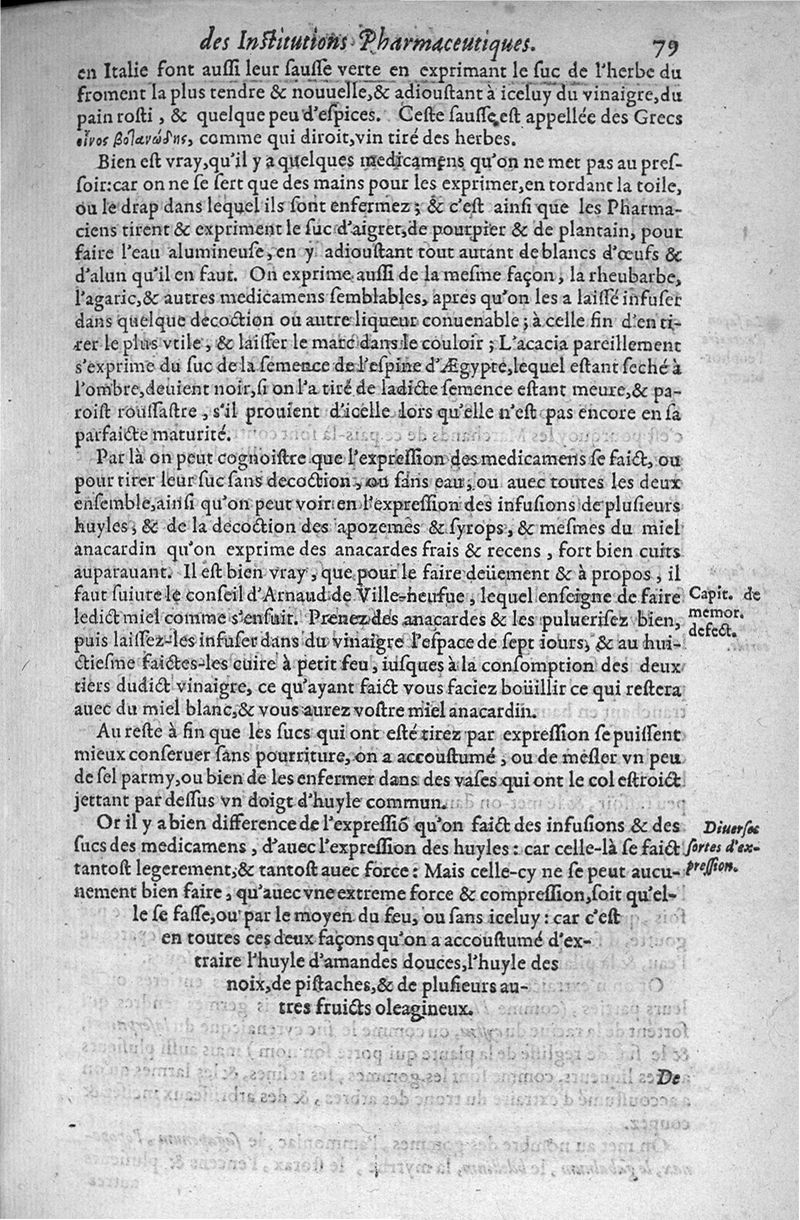 des Inſtitutions Pharmaceutiques. 79
en Italie font auſſi leur ſauſſe verte en exprimant le ſuc de l'herbe du
froment la plus tendre & nouuelle,& adiouſtant à iceluy du vinaigre,du
pain roſti, & quelque peu d'eſpices. Ceſte ſauſſe,eſt appellée des Grecs
οἶνος βοτανώδης, comme qui diroit,vin tiré des herbes.
Bien eſt vray,qu'il y a quelques medicamens qu'on ne met pas au preſ-
ſoir:car on ne ſe ſert que des mains pour les exprimer,en tordant la toile,
ou le drap dans lequel ils ſont enfermez; & c'eſt ainſi que les Pharma-
ciens tirent & expriment le ſuc d'aigret,de pourpier & de plantain, pour
faire l'eau alumineuſe,en y adiouſtant tout autant de blancs d'œufs &
d'alun qu'il en faut. On exprime auſſi de la meſme façon, la rheubarbe,
l'agaric,& autres medicamens ſemblables, apres qu'on les a laiſſé infuſer
dans quelque decoction ou autre liqueur conuenable; à celle fin d'en ti-
rer le plus vtile, & laiſſer le marc dans le couloir; L'acacia pareillement
s'exprime du ſuc de la ſemence de l'eſpine d'Ægypte,lequel eſtant ſeché à
l'ombre,deuient noir,ſi on l'a tiré de ladicte ſemence eſtant meure,& pa-
roiſt rouſſaſtre, s'il prouient d'icelle lors qu'elle n'eſt pas encore en ſa
parfaicte maturité.
Par là on peut cognoiſtre que l'expreſſion des medicamens ſe faict, ou
pour tirer leur ſuc ſans decoction, ou ſans eau, ou auec toutes les deux
enſemble,ainſi qu'on peut voir en l'expreſſion des infuſions de pluſieurs
huyles, & de la decoction des apozemes & ſyrops, & meſmes du miel
anacardin qu'on exprime des anacardes frais & recens, fort bien cuits
auparauant. Il eſt bien vray, que pour le faire deüement & à propos, il
faut ſuiure le conſeil d'Arnaud de Ville-neufue, lequel enſeigne de faire
Capit. de
memor.
defect.
ledict miel comme s'enſuit. Prenez des anacardes & les puluerisez bien,
puis laiſſez-les infuſer dans du vinaigre l'eſpace de ſept iours, & au hui-
ctieſme faictes-les cuire à petit feu, iuſques à la conſomption des deux
tiers dudict vinaigre, ce qu'ayant faict vous faciez boüillir ce qui reſtera
auec du miel blanc,& vous aurez voſtre miel anacardin.
Au reſte à fin que les ſucs qui ont eſté tirez par expreſſion ſe puiſſent
mieux conſeruer ſans pourriture, on a accouſtumé, ou de meſler vn peu
de ſel parmy,ou bien de les enfermer dans des vaſes qui ont le col eſtroict
jettant par deſſus vn doigt d'huyle commun.
Or il y a bien difference de l'expreſſiō qu'on faict des infuſions & des
Diuerſes
ſortes d'ex-
preſſion.
ſucs des medicamens, d'auec l'expreſſion des huyles: car celle-là ſe faict
tantoſt legerement,& tantoſt auec force: Mais celle-cy ne ſe peut aucu-
nement bien faire, qu'auec vne extreme force & compreſſion,ſoit qu'el-
le ſe faſſe,ou par le moyen du feu, ou ſans iceluy: car c'eſt
en toutes ces deux façons qu'on a accouſtumé d'ex-
traire l'huyle d'amandes douces,l'huyle des
noix,de piſtaches,& de pluſieurs au-
tres fruicts oleagineux.
De